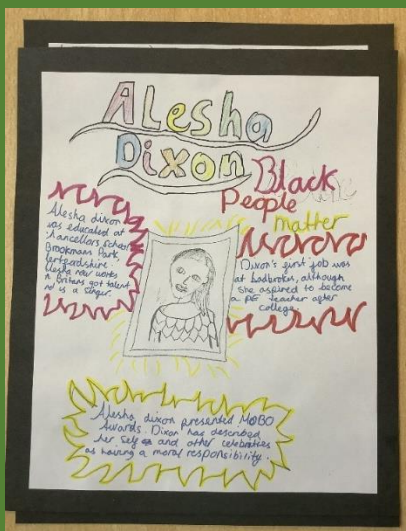 Alesha
Dixon
Black
People
Matter
Alesha dixon
was educated at
chancellors school
Brookmans Park,
Alesha now works
Britans got talent
and is a singer.
Dixon's first job was
at ladbrokes, although
she aspired to become
a PE teacher after
college
Alesha dixon presented MOBO
Awards. Dixon has described
her self and other celebrities
as having a moral responsibility.